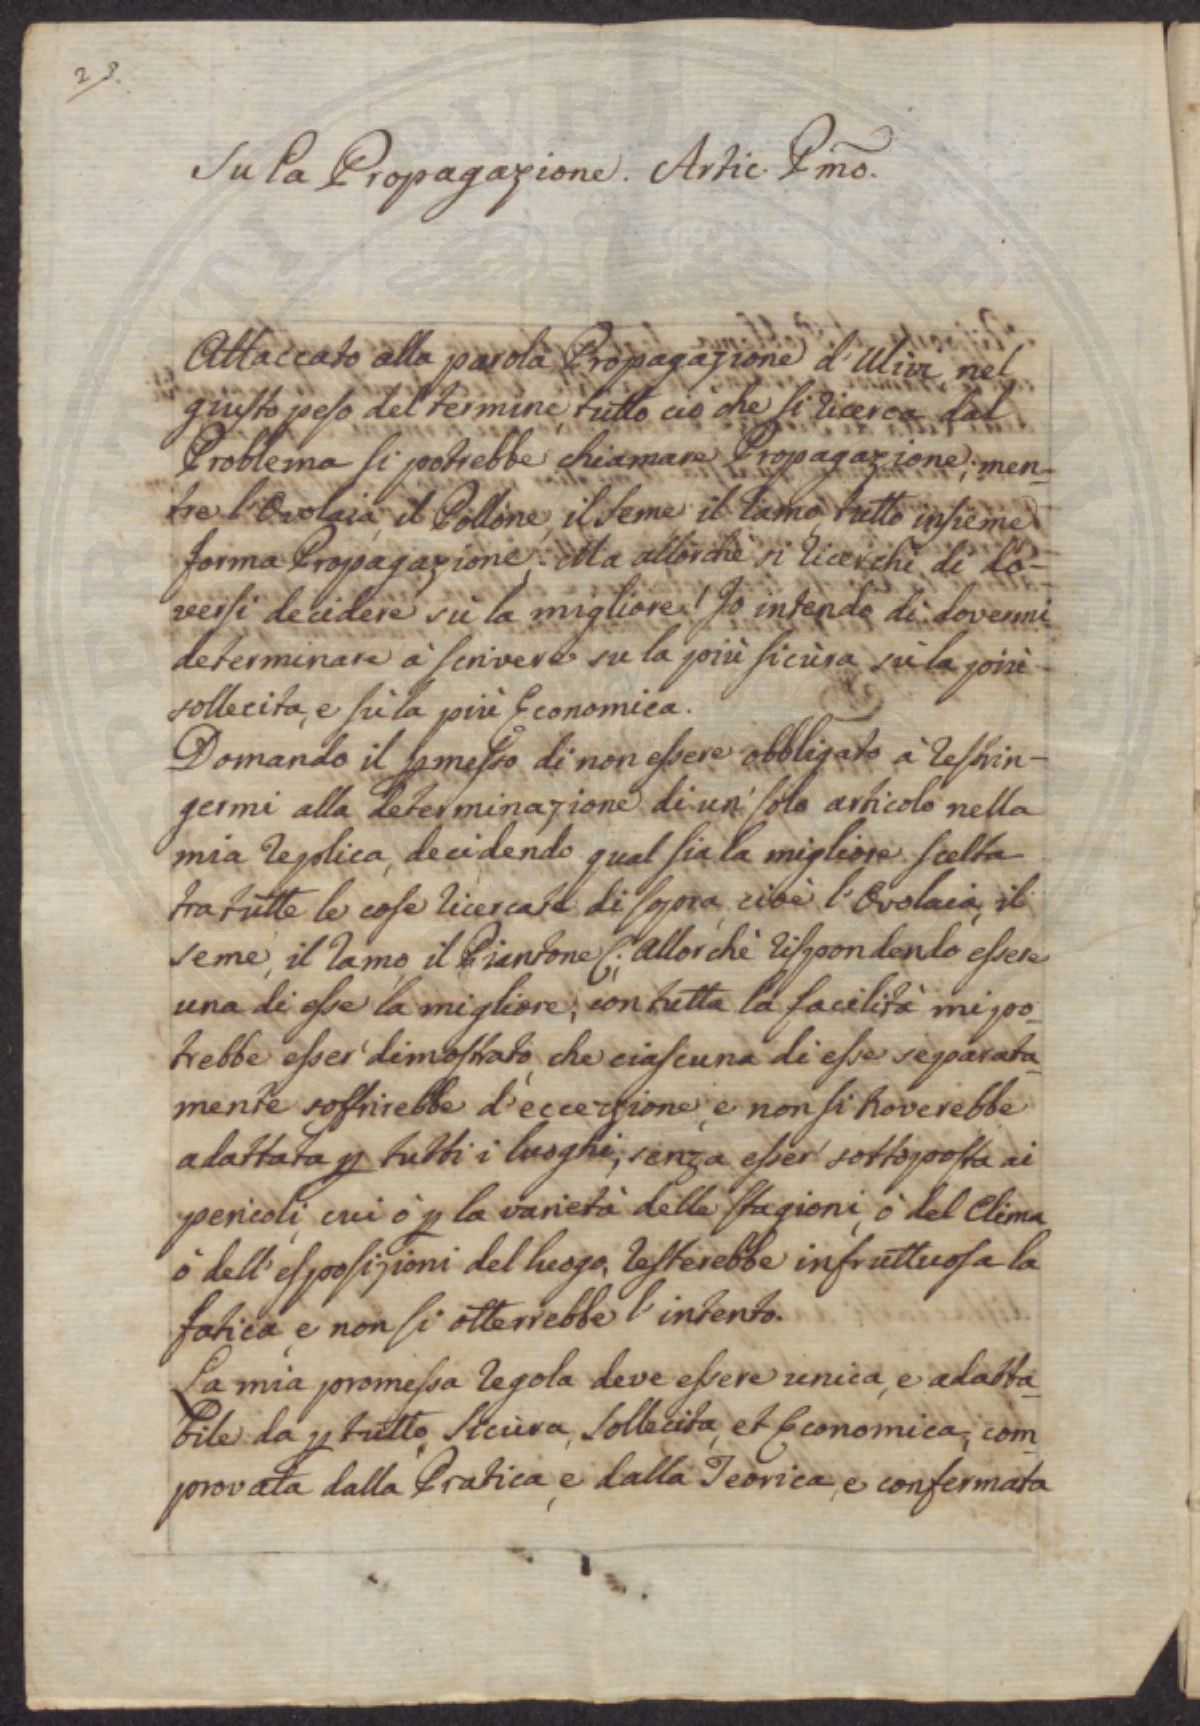 23.
Su la Propagazione. Artic. Pmo.
Attaccato alla parola Propagazione d'Ulivi nel
giusto peso del termine tutto ciò che si ricerca dal
Problema si potrebbe chiamare Propagazione; men-
tre l'Ovolaia, il Pollone, il seme il ramo, tutto insieme
forma Propagazione. Ma allorchè si ricerchi di do-
versi decidere sù la migliore! Io intendo di dovermi
determinare à scrivere su la più sicùra sù la più
sollecita, e sù la più Economica.
Domando il pmesso di non essere obbligato à restrin-
germi alla determinazione di un' solo articolo nella
mia replica, decidendo qual sia la migliore scelta
tra tutte le cose ricercate di sopra, cioè l'Ovolaia, il
seme, il ramo, il Piantone &; Allorchè rispondendo essere
una di esse la migliore, con tutta la facilità mi po-
trebbe esser' dimostrato, che ciascuna di esse separata-
mente soffrirebbe d'eccezzione, e non si troverebbe
adattata p tutti i luoghi, senza esser' sottoposta ai
pericoli, cui ò p la varietà delle stagioni, ò del Clima
ò dell'esposizioni del luogo, resterebbe infruttuosa la
fatica, e non si otterrebbe l'intento.
La mia promessa regola deve essere unica, e adatta-
bile da p tutto, sicùra, sollecita, et Economica, com-
provata dalla Pratica, e dalla Teorica, e confermata